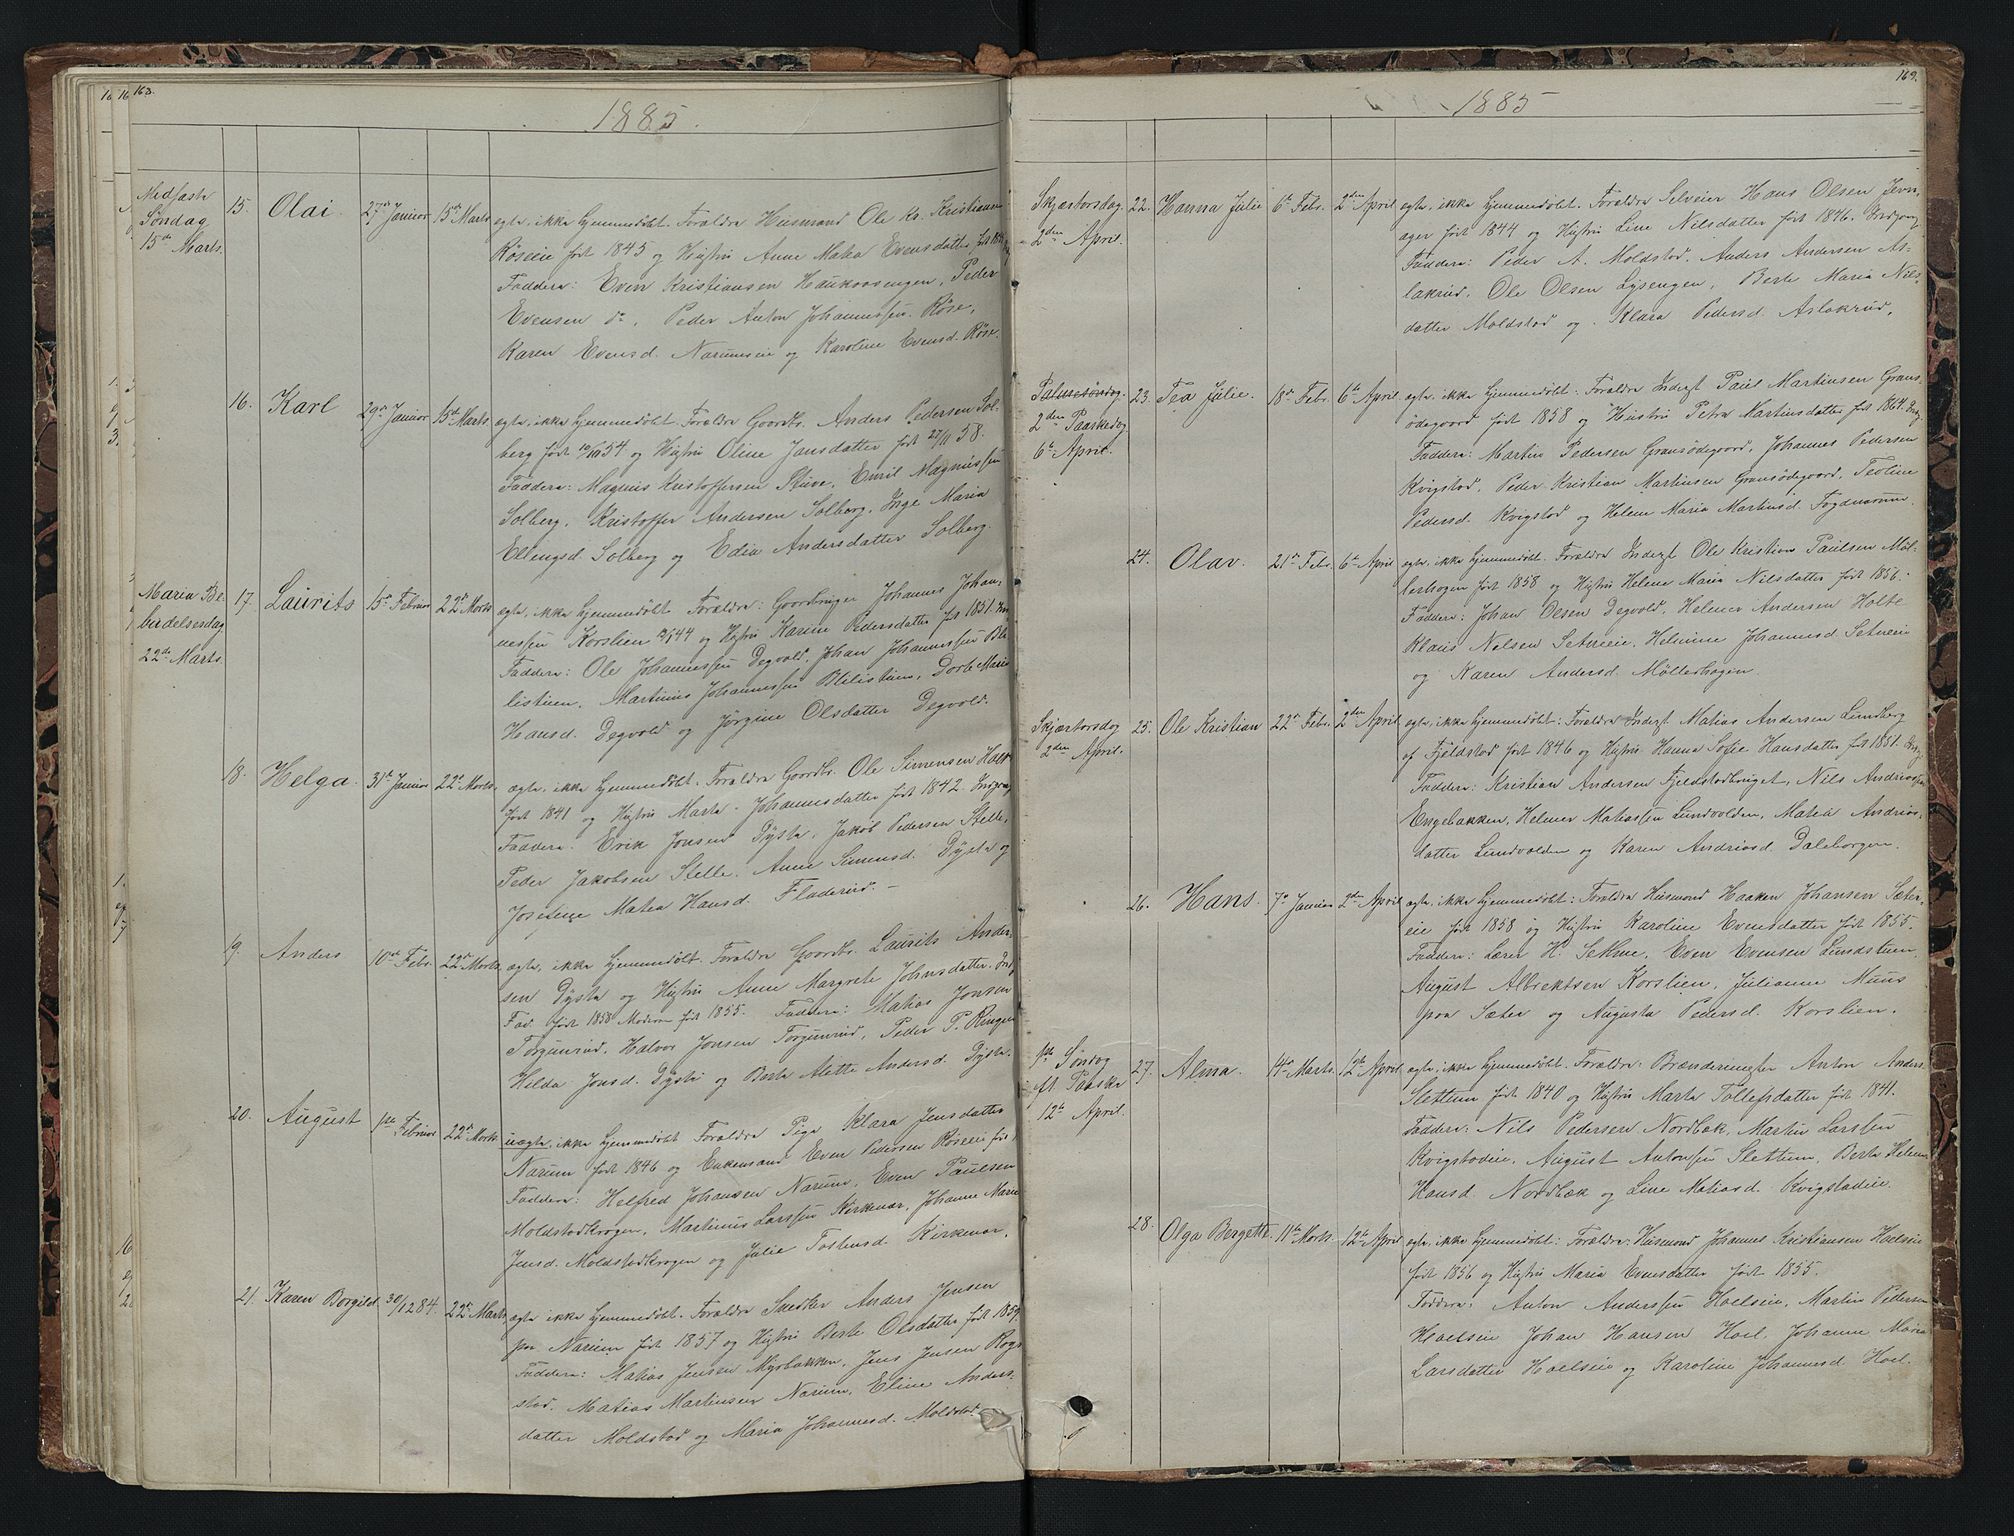 163.
1885.
Medfaste
Søndag
15de Marts.
15. Olai. 27de Januar 15de Marts
egte, ikke hjemmedøbt. Forældre Husmand Ole Kr. Kristiansen
Røseie født 1845 og Hustru Anne Matea Evensdatter født
Faddere: Even Kristiansen Haukaasengen, Peder
Evensen do, Peder Anton Johannessen Røse,
Karen Evensd. Narumseie og Karoline Evensd. Røse.
16. Karl 29de Januar 15de Marts.
egte, ikke hjemmedøbt. Forældre Gaardbr. Anders Pedersen Sol-
berg født 54 og Hustru Oline Jansdatter født 27/11 58.
Faddere: Magnus Kristoffersen Stuve, Emil Magnussen
Solberg, Kristoffer Andersen Solberg, Inge Maria
Ellengsd. Solberg og Edia Andersdatter Solberg.
Maria Be-
budelsesdag
22de Marts.
17. Laurits 15de Februar 22de Marts
egte, ikke hjemmedøbt. Forældre: Gaardbruger Johannes Johan-
nessen Korslien 44 og Hustru Karine Pedersdatter født 1851.
Faddere: Ole Johannessen Degvold, Johan Johannessen Bli-
listuen, Martinus Johannessen Blilistuen, Dorte Marie
Hansd. Degvold og Jørgine Olsdatter Degvold.
18. Helga. 31te Januar 22de Marts.
egte, ikke hjemmedøbt. Forældre Gaardbr. Ole Simensen Holte
født 1841 og Hustru Marta Johannesdatter født 1842.
Faddere: Erik Jonsen Dysta, Jakob Pedersen Stelle,
Peder Jakobsen Stelle, Anne Simensd. Dysta og
Josefine Matea Hansd. Fladerud. –
19. Anders 10de Febr. 22de Marts.
egte, ikke hjemmedøbt. Forældre Gaardbr. Laurits Ander-
sen Dysta og Hustru Anne Margrete Johnsdatter.
Fad. født 1858 Moderen født 1855. Faddere: Matias Jonsen
Torgunrud, Halvor Jonsen Torgunrud, Peder P. Ringen
Helda Jonsd. Dyste og Berte Alette Andersd. Dysta.
20. August 1ste Februar 22de Marts.
uegte, ikke hjemmedøbt. Forældre Pige Klara Jensdatter
Narum født 1846 og Enkemand Even Pedersen Røseeie født
Faddere: Helfred Johansen Narum, Even Paulsen
Moldstadkrogen, Martinus Larssen Kirkerar, Johanne Marie
Jensd. Moldstadkrogen og Julie Tostensd. Kirkerar.
21. Karen Borgild 30/12 84. 22de Marts
egte, ikke hjemmedøbt. Forældre Snedker Anders Jensen
paa Narum født 1857 og Hustru Berte Olsdatter født 1859.
Faddere: Matias Jensen Myrbakken, Jens Jensen Rog-
stad, Matias Martinsen Narum, Eline Anders-
datter Moldstad og Maria Johannesd. Moldstad
169.
1885
Skjærtorsdag.
2den April.
22. Hanna Julie 6te Febr. 2den April
egte, ikke hjemmedøbt. Forældre Selveier Hans Olsen Jevn-
ager født 1844 og Hustru Line Nilsdatter født 1846.
Faddere: Peder A. Moldstad, Anders Andersen As-
lakrud, Ole Olsen Lysengen, Berte Maria Nils-
datter Moldstad og Klara Pedersd. Aslakrud.
Palmesøndag.
2den Paaskedag
6te April.
23. Tea Julie. 18de Febr. 6te April
egte, ikke hjemmedøbt: Forældre Inderst Paul Martinsen Grans-
ødegaard født 1858 og Hustru Petra Martinsdatter født 1864.
Faddere: Martin Pedersen Gransødegaard, Johannes Pedersen
Kvigstad, Peder Kristian Martinsen Gransødegaard, Teoline
Pedersd. Kvigstad og Helene Maria Martinsd. Fogdnarum.
24. Olav. 21de Febr. 6te April
egte, ikke hjemmedøbt. Forældre Inderst Ole Kristian Paulsen Møl-
lerhagen født 1858 og Hustru Helene Maria Nilsdatter født 1856.
Faddere: Johan Olsen Degvold, Helmer Andersen Holte
Klaus Nelsen Setneeie, Helmine Johannesd. Setneeie
og Karen Andersd. Møllerhagen.
Skjærtorsdag
2den April.
25. Ole Kristian 22de Febr. 2den April
egte, ikke hjemmedøbt: Forældre Inderst Matias Andersen Lundberg
af Fjeldstad født 1846 og Hustru Hanna Sofie Hansdatter født 1851.
Faddere: Kristian Andersen Fjeldstadbriget, Nils Andreassen
Engebakken, Helmer Matiassen Lundvolden, Matea Andreas-
datter Lundvolden og Karen Andreasd. Daleborgen.
26. Hans. 7de Januar 2den April
egte, ikke hjemmedøbt: Forældre Husmand Haaken Johansen Sæter-
eie født 1858 og Hustru Karoline Evensdatter født 1855.
Faddere: Lærer H. Sethne, Even Evensen Lundstuen,
August Albrektsen Korslien, Julianne Muus
paa Sæter og Augusta Pedersd. Korslien.
1ste Søndag
eft. Paaske
12te April.
27. Alma. 14de Marts. 12te April
egte, ikke hjemmedøbt. Forældre: Brænderimester Anton Anders.
Slettum født 1840 og Hustru Marta Tollefsdatter født 1841.
Faddere: Nils Pedersen Nordbæk, Martin Larssen
Kvigstadeie, August Antonssen Slettum, Berte Helene
Hansd. Nordbæk og Line Matiasd. Kvigstadeie.
28. Olga Bergette 11te Marts. 12te April
egte, ikke hjemmedøbt: Forældre: Husmand Johannes Kristiansen Hoelseie
født 1856 og Hustru Maria Evensdatter født 1855.
Faddere: Anton Anderssen Hoelseie, Martin Pedersen
Hoelseie Johan Hansen Hoel, Johanne Maria
Larsdatter Hoelseie og Karoline Johannesd. Hoel.